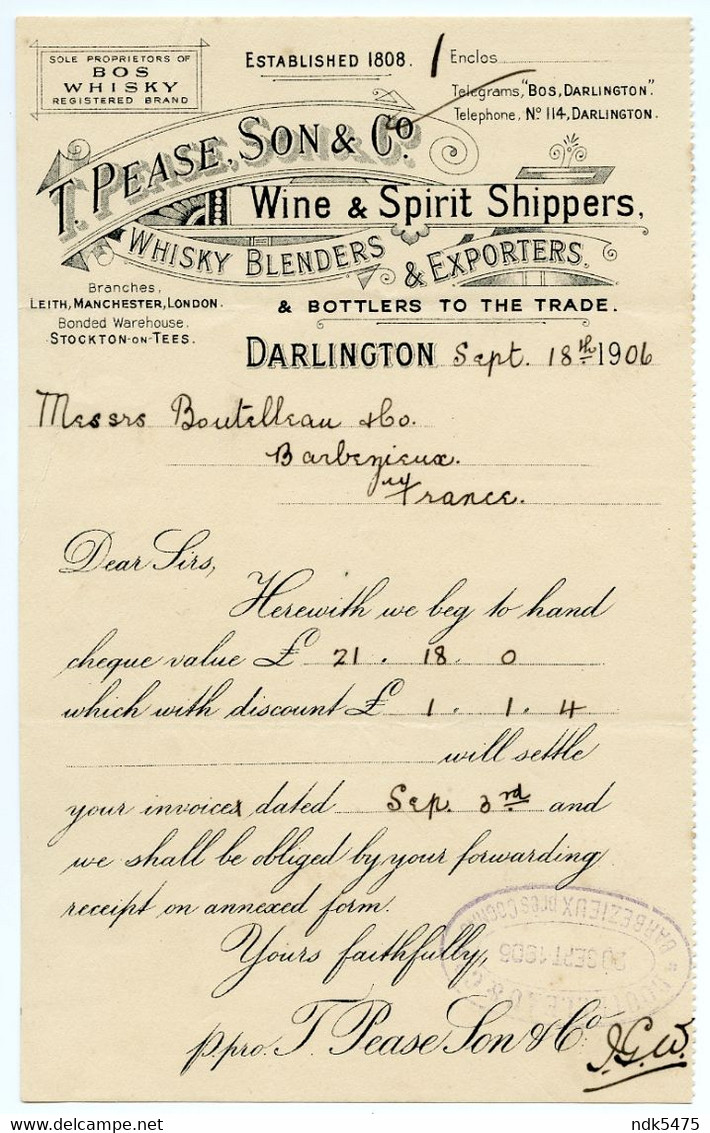 SOLE PROPRIETORS OF
BOS
WHISKY
REGISTERED BRAND
ESTABLISHED 1808.
1 Enclos
Telegrams, "BOS, DARLINGTON".
Telephone, No 114, DARLINGTON.
T. PEASE, SON & Co.
Wine & Spirit Shippers,
WHISKY BLENDERS
& EXPORTERS.
& BOTTLERS TO THE TRADE.
Branches,
LEITH, MANCHESTER, LONDON.
Bonded Warehouse.
STOCKTON-ON-TEES.
DARLINGTON Sept. 18th 1906
Messrs Boutelleau & Co.
Barbezieux.
France.
Dear Sirs,
Herewith we beg to hand
cheque value £ 21. 18. 0
which with discount £ 1. 1. 4
will settle
your invoices dated Sep. 3rd and
we shall be obliged by your forwarding
receipt on annexed form.
Yours faithfully,
p.pro. T. Pease Son & Co.
J.G.W.
BOUTELLEAU & Co
20 SEPT 1906
BARBEZIEUX près COGNAC
ndk5475